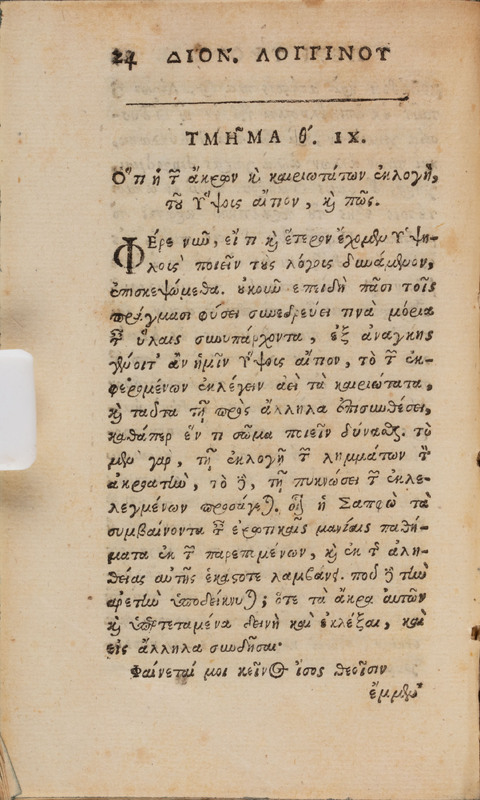 24 ΔΙΟΝ. ΛΟΓΓΙΝΟΥ
ΤΜΗ͂ΜΑ θ΄. IX.
Ὅτι ἡ τῶν ἄκρων καὶ καιριωτάτων ἐκλογὴ,
τοῦ Ὕψους αἴτιον, καὶ πῶς.
ΦΕρε νυῦ, εἴ τι καὶ ἕτερον ἔχομεν Ὑψη-
λοὺς ποιεῖν τοὺς λόγους δυνάμενον,
ἐπισκεψώμεθα. οὐκοῦν ἐπειδὴ πᾶσι τοῖς
πράγμασι φύσει συνεδρεύει τινὰ μόρια
ταῖς ὕλαις συνυπάρχοντα, ἐξ ἀναγκης
γένοιτ' ἂν ἡμῖν Ὕψους αἴτιον, τὸ τῶν ἐκ-
φερομένων ἐκλέγειν ἀεὶ τὰ καιριώτατα,
καὶ ταῦτα τῇ πρὸς ἄλληλα ἐπισυνθέσει,
καθάπερ ἕν τι σῶμα ποιεῖν δύνασθαι. τὸ
μὲν γαρ, τῇ ἐκλογῇ τῶν λημμάτων τὸν
ἀκροατὴν, τὸ δὲ, τῇ πυκνώσει τῶν ἐκλε-
λεγμένων προσάγεται. οἷον ἡ Σαπφὼ τὰ
συμβαίνοντα ταῖς ἐρωτικαῖς μανίαις παθή-
ματα ἐκ τῶν παρεπομένων, καὶ ἐκ τῆς ἀλη-
θείας αὐτῆς ἑκάστοτε λαμβάνει. ποῦ δὲ τὴν
αρετὴν ὑποδείκνυται; ὅτε τὰ ἄκρα αὐτῶν
καὶ ὑπερτεταμένα δεινὴ καὶ ἐκλέξαι, καὶ
εἰς ἄλληλα συνδῆσαι·
Φαίνεταί μοι κεῖνος ἴσος θεοῖσιν
ἔμμεν